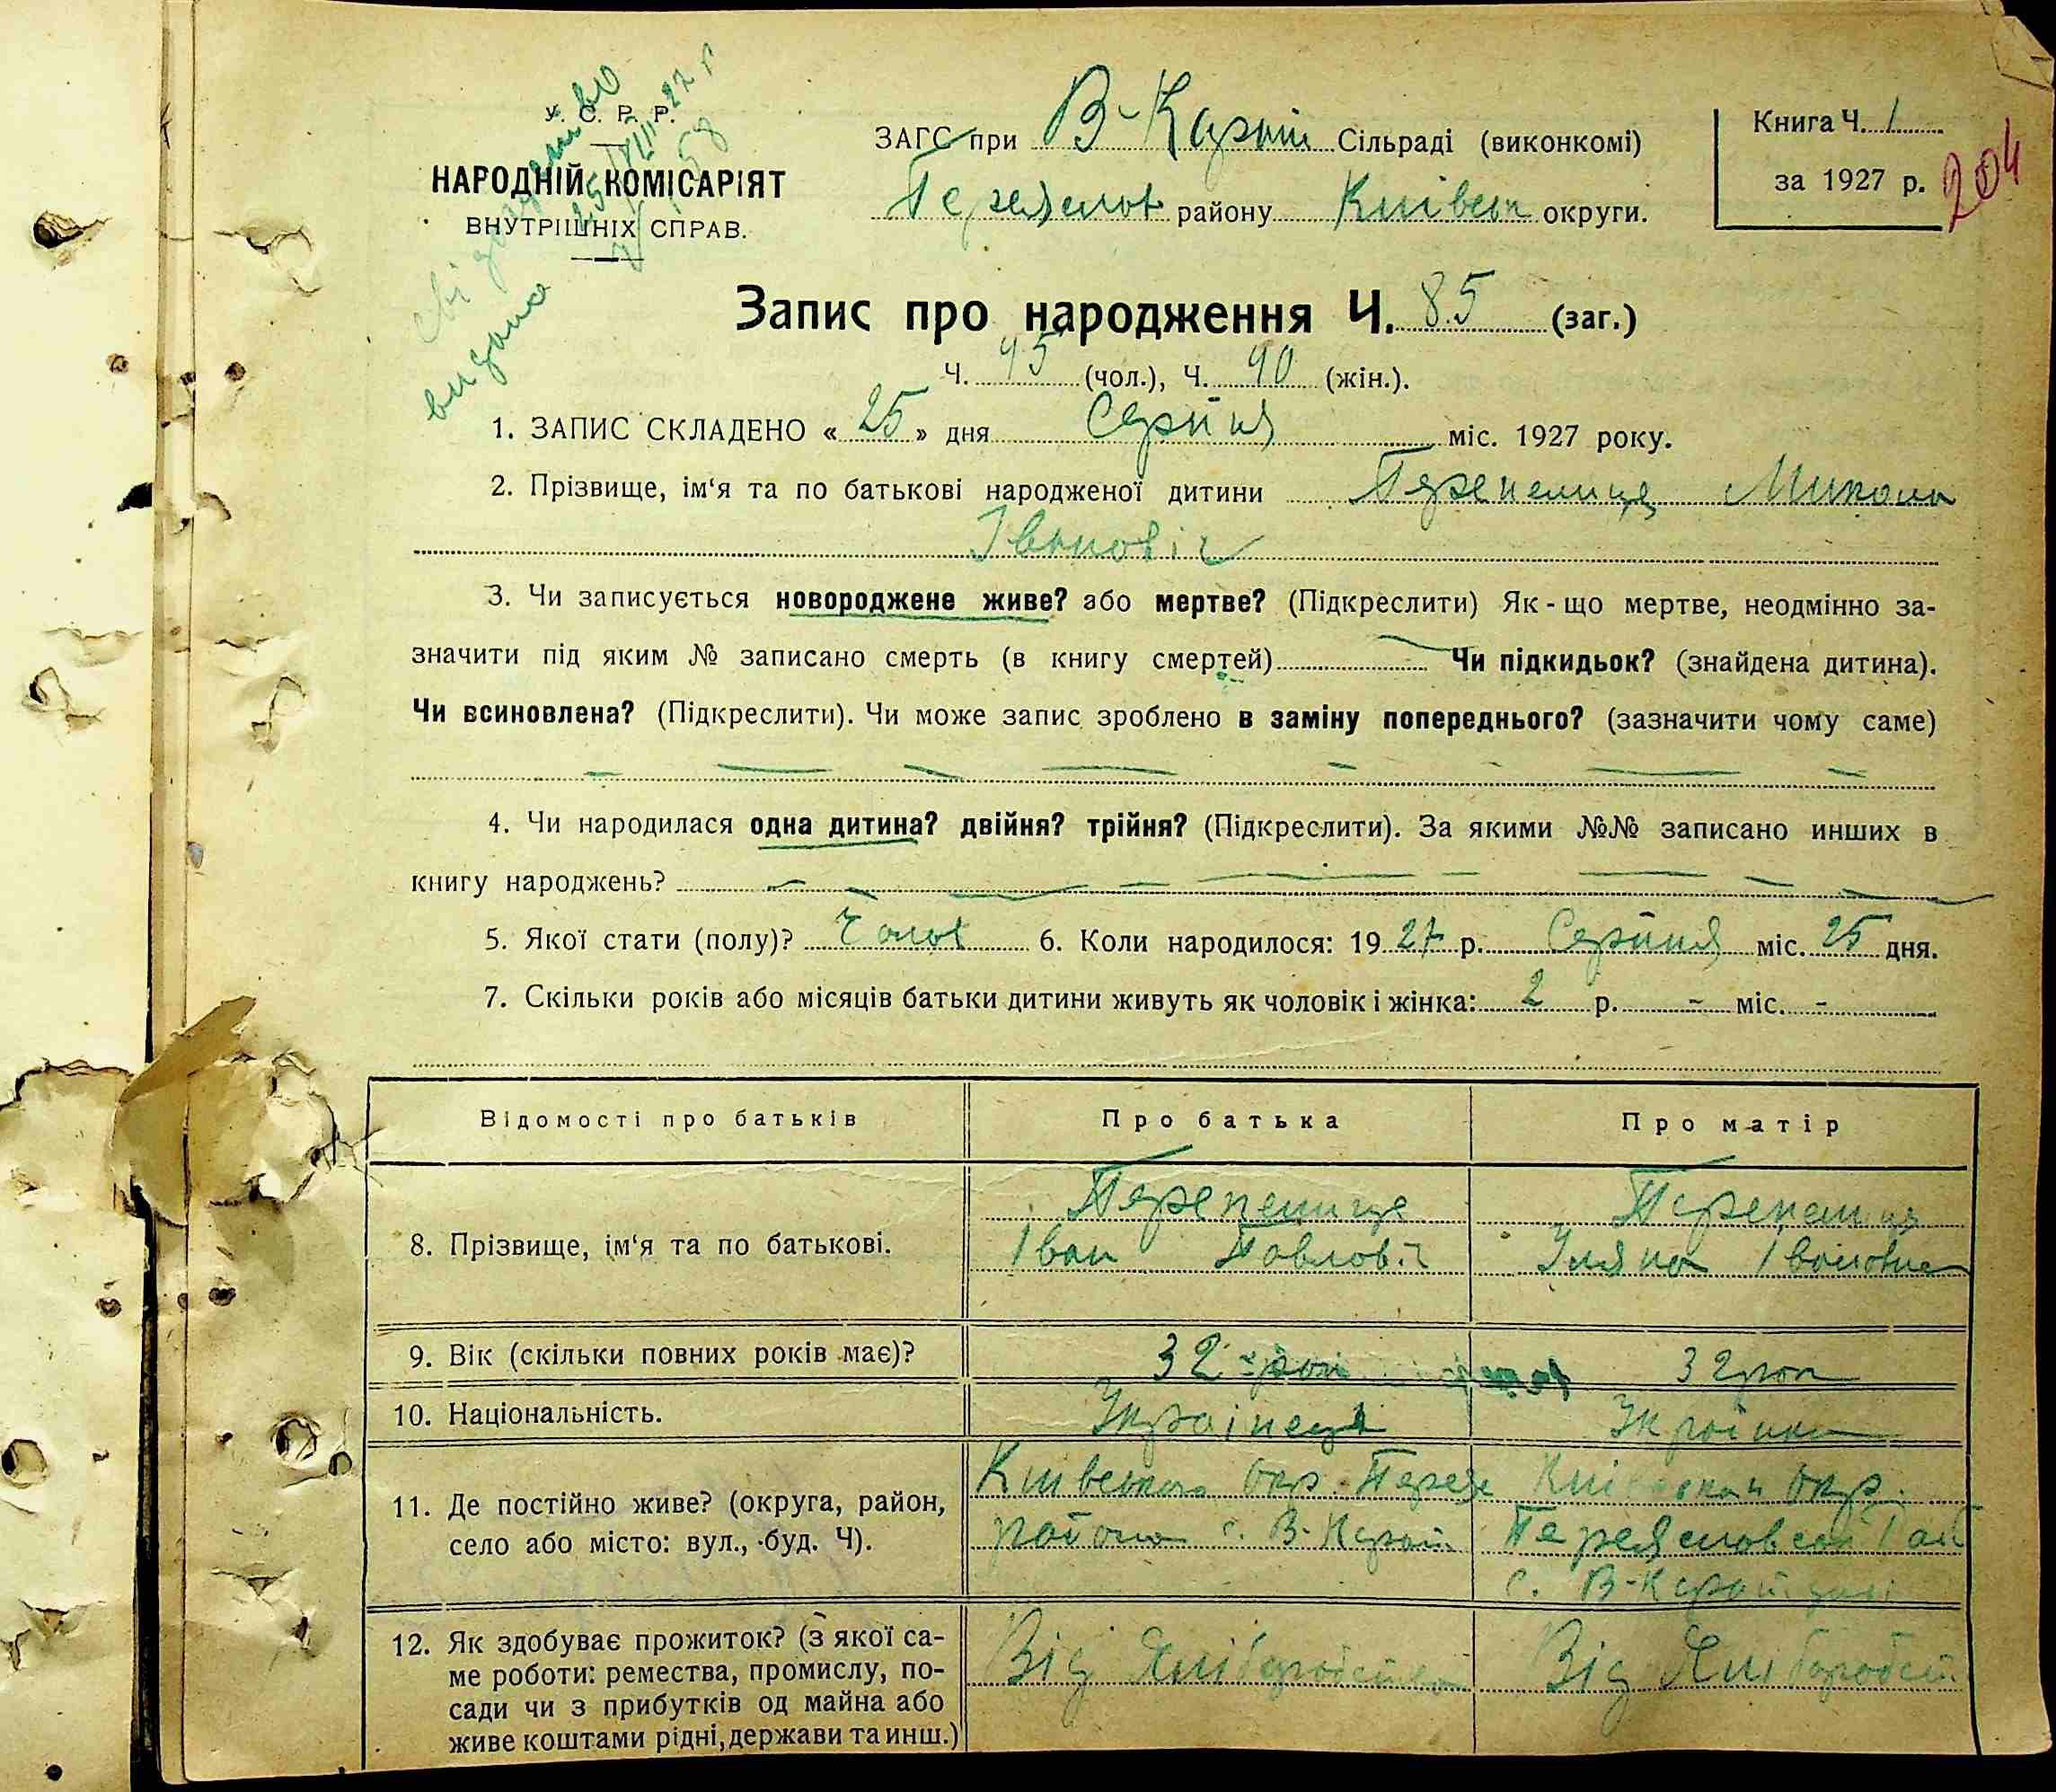 У. С. Р. Р.
НАРОДНІЙ КОМІСАРІЯТ
ВНУТРІШНІХ СПРАВ.
видано
ЗАГС при В-Карат Сільраді (виконкомі)
Переяслов району Київськ округи.
Книга Ч. 1
за 1927 р.
204
Запис про народження Ч. 85 (заг.)
Ч. 45 (чол.), Ч. 40 (жін.).
1. ЗАПИС СКЛАДЕНО « 25 » дня Серпня міс. 1927 року.
2. Прізвище, ім‘я та по батькові народженої дитини Перепелиця Микола
Іванович
3. Чи записується новороджене живе? або мертве? (Підкреслити) Як - що мертве, неодмінно за-
значити під яким № записано смерть (в книгу смертей) Чи підкидьок? (знайдена дитина).
Чи всиновлена? (Підкреслити). Чи може запис зроблено в заміну попереднього? (зазначити чому саме)
4. Чи народилася одна дитина? двійня? трійня? (Підкреслити). За якими №№ записано инших в
книгу народжень?
5. Якої стати (полу)? Чолов 6. Коли народилося: 1927 р. Серпня міс. 25 дня.
7. Скільки років або місяців батьки дитини живуть як чоловік і жінка: 2 р. - міс. -
Відомості про батьків Про батька Про матір
8. Прізвище, ім‘я та по батькові.
Перепелиця
Іван Павлович
Перепелиця
Уляна Івановна
9. Вік (скільки повних років має)? 32 рок 32 рок
10. Національність. Українець Українка
11. Де постійно живе? (округа, район,
село або місто: вул., буд. Ч).
Київської Окр. Переясл
району с. В-Карат
Київської Окр.
Переяславськ Рай
с. В-Карат
12. Як здобуває прожиток? (з якої са-
ме роботи: ремества, промислу, по-
сади чи з прибутків од майна або
живе коштами рідні, держави та инш.)
Від Хліборобства
Від Хліборобст